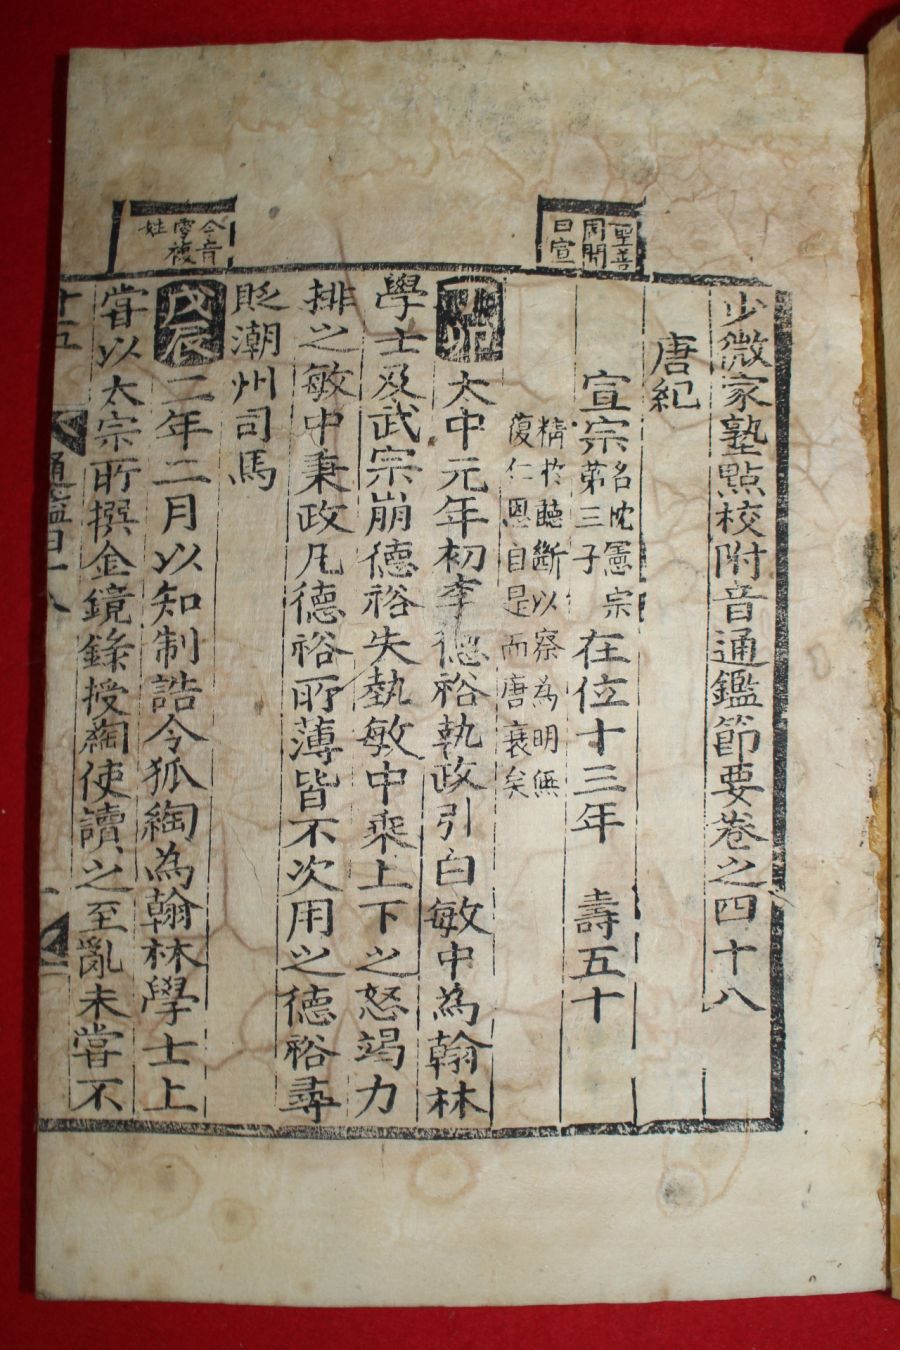 少微家塾點校附音通鑑節要卷之四十八
唐紀
聖善
周聞
曰宣
宣宗名忱憲宗第三子在位十三年 壽五十
精於聽斷以察為明無
復仁恩自是而唐衰矣
丁卯太中元年初李德裕執政引白敏中為翰林
學士及武宗崩德裕失埶敏中乘上下之怒竭力
排之敏中秉政凡德裕所薄皆不次用之德裕尋
貶潮州司馬
令音
零複
姓
戊辰二年二月以知制誥令狐綯為翰林學士上
嘗以太宗所撰金鏡錄授綯使讀之至亂未嘗不
十五
通鑑四十八